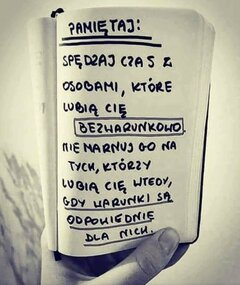 PAMIĘTAJ:
SPĘDZAJ CZAS Z
OSOBAMI, KTÓRE
LUBIĄ CIĘ
BEZWARUNKOWO.
NIE MARNUJ GO NA
TYCH, KTÓRZY
LUBIĄ CIĘ WTEDY,
GDY WARUNKI SĄ
ODPOWIEDNIE
DLA NICH.